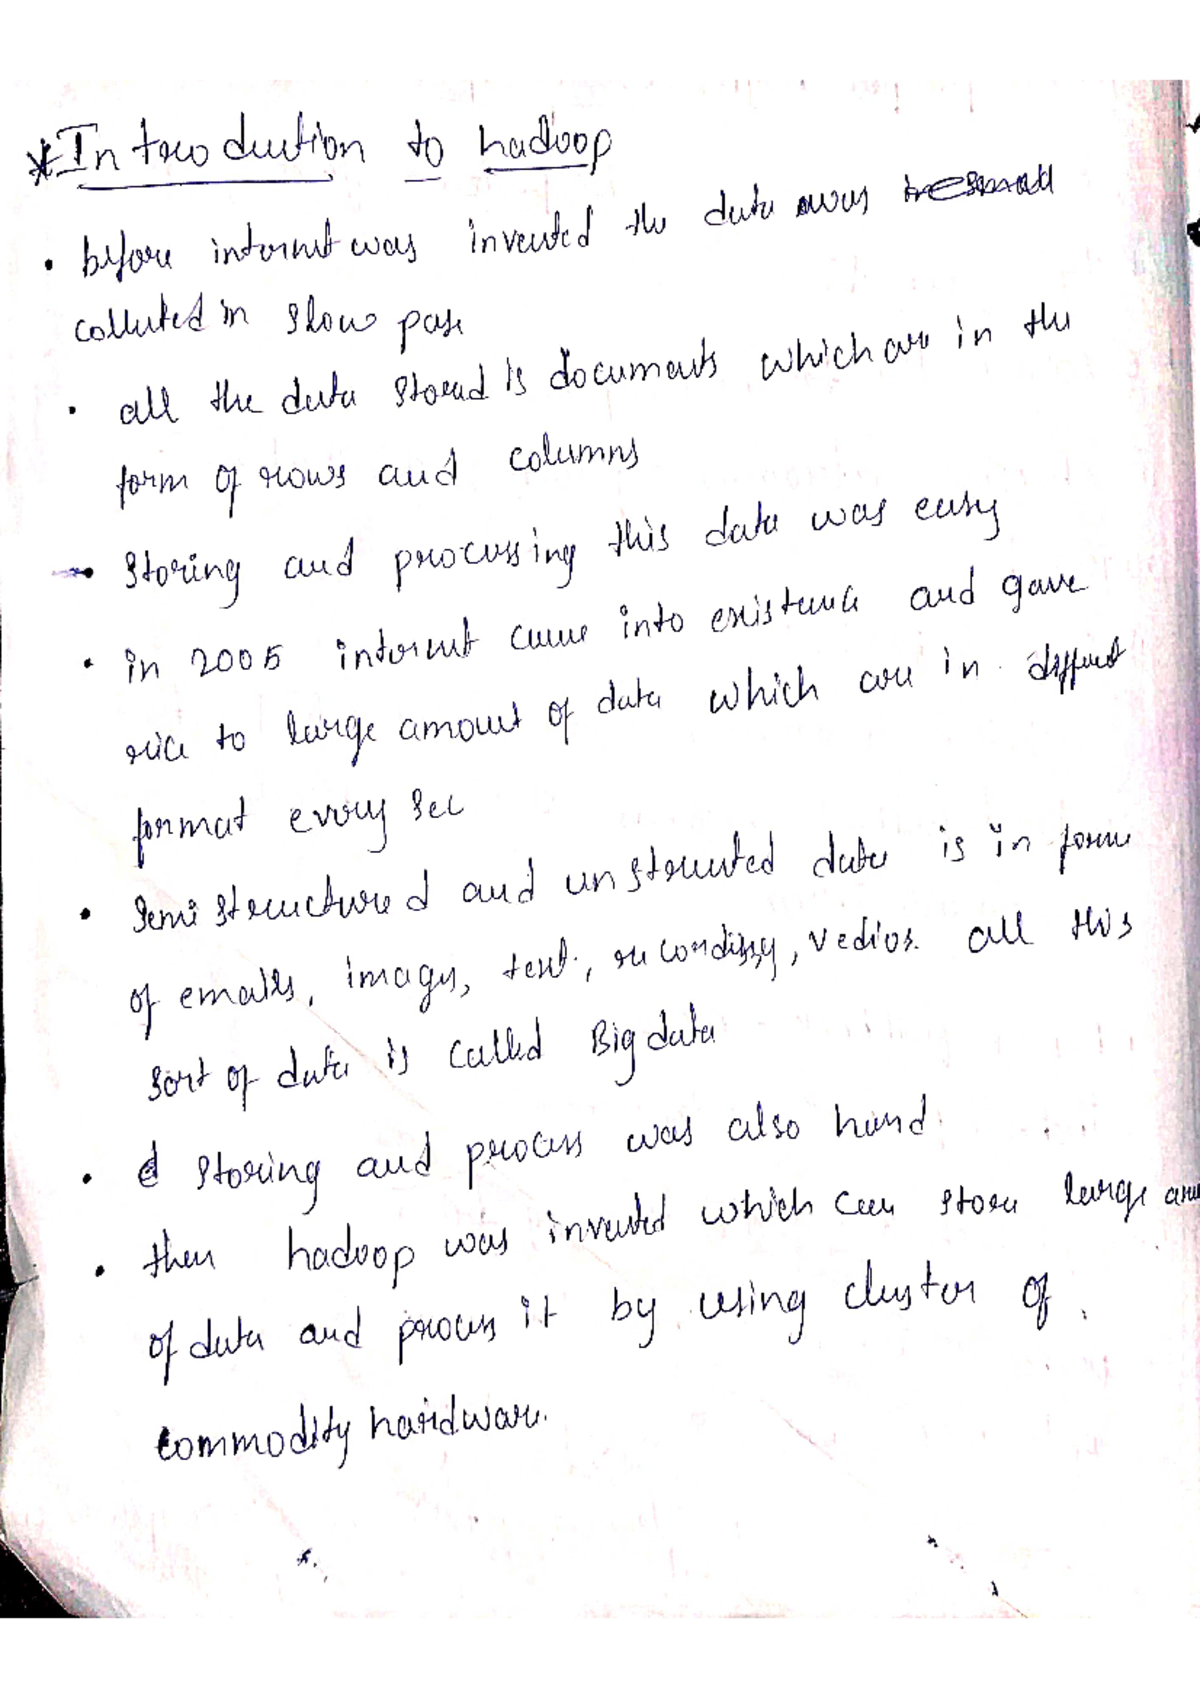 * Introduction to hadoop
• before internet was invented the data was
collected in slow pase
• all the data stored is documents which are in the
form of rows and columns
→ storing and processing this data was easy
• in 2005 internet came into existence and gave
rice to large amount of data which are in different
format every sec
• Semi structured and unstructed data is in form
of emails, images, text, recordings, vedios. all this
sort of data is called Big data
• storing and process was also hard.
• then hadoop was invented which can store large
of data and process it by using cluster of
commodity hardware.